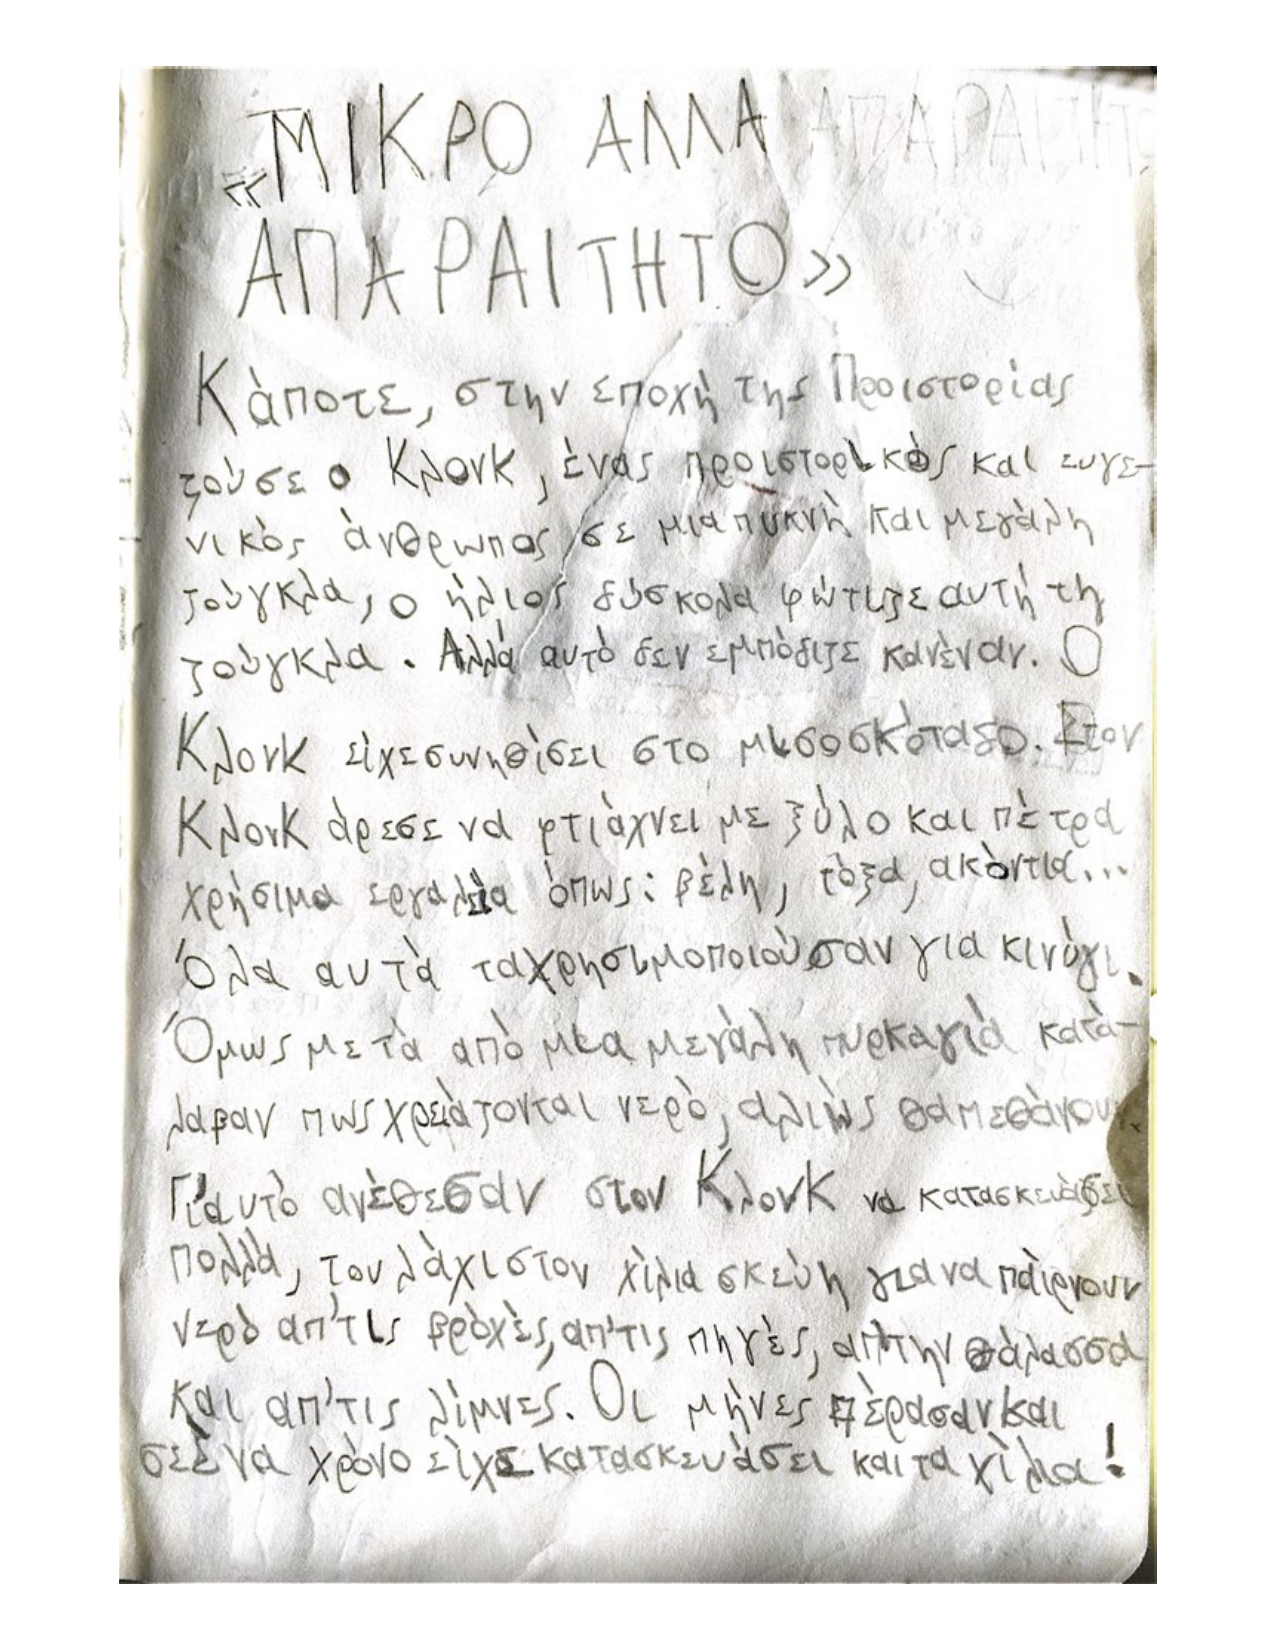 «ΜΙΚΡΟ ΑΛΛΑ ΑΠΑΡΑΙΤΗΤΟ
ΑΠΑΡΑΙΤΗΤΟ»
Κάποτε, στην εποχή της Προιστορίας
ζούσε ο Κλονκ, ένας προιστορικός και ευγε-
νικός άνθρωπος σε μια πυκνή και μεγάλη
ζούγκλα, ο ήλιος δύσκολα φώτιζε αυτή τη
ζούγκλα. Αλλά αυτό δεν εμπόδιζε κανέναν. Ο
Κλονκ είχε συνηθίσει στο μισοσκόταδο. Στον
Κλονκ άρεσε να φτιάχνει με ξύλο και πέτρα
χρήσιμα εργαλεία όπως: βέλη, τόξα, ακόντια...
Όλα αυτά τα χρησιμοποιούσαν για κινύγι.
Όμως μετά από μια μεγάλη πυρκαγιά κατά-
λαβαν πως χρειάζονται νερό, αλιώς θα πεθάνουν.
Γι'αυτό ανέθεσαν στον Κλονκ να κατασκευάσει
πολλά, τουλάχιστον χίλια σκεύη για να παίρνουν
νερό απ'τις βροχές, απ'τις πηγές, απ'την θάλασσα
και απ'τις λίμνες. Οι μήνες πέρασαν και
σε ένα χρόνο είχε κατασκευάσει και τα χίλια!